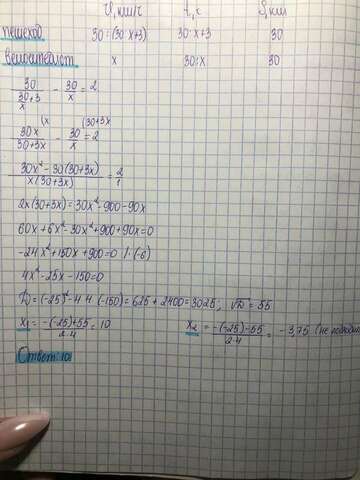 V, км/ч t, ч S, км
пешеход 30:(30:x+3) 30:x+3 30
велосипедист x 30:x 30
30/(30/x+3) - 30/x = 2
(x (30+3x
30x/(30+3x) - 30/x = 2
(30x²-30(30+3x))/(x(30+3x)) = 2/1
2x(30+3x)=30x²-900-90x
60x+6x²-30x²+900+90x=0
-24x²+150x+900=0 |:(-6)
4x²-25x-150=0
D=(-25)²-4·4·(-150)=625+2400=3025; √D=55
x1=(-(-25)+55)/(2·4)=10 x2=(-(-25)-55)/(2·4)=-3,75 (не подходит
Ответ: 10